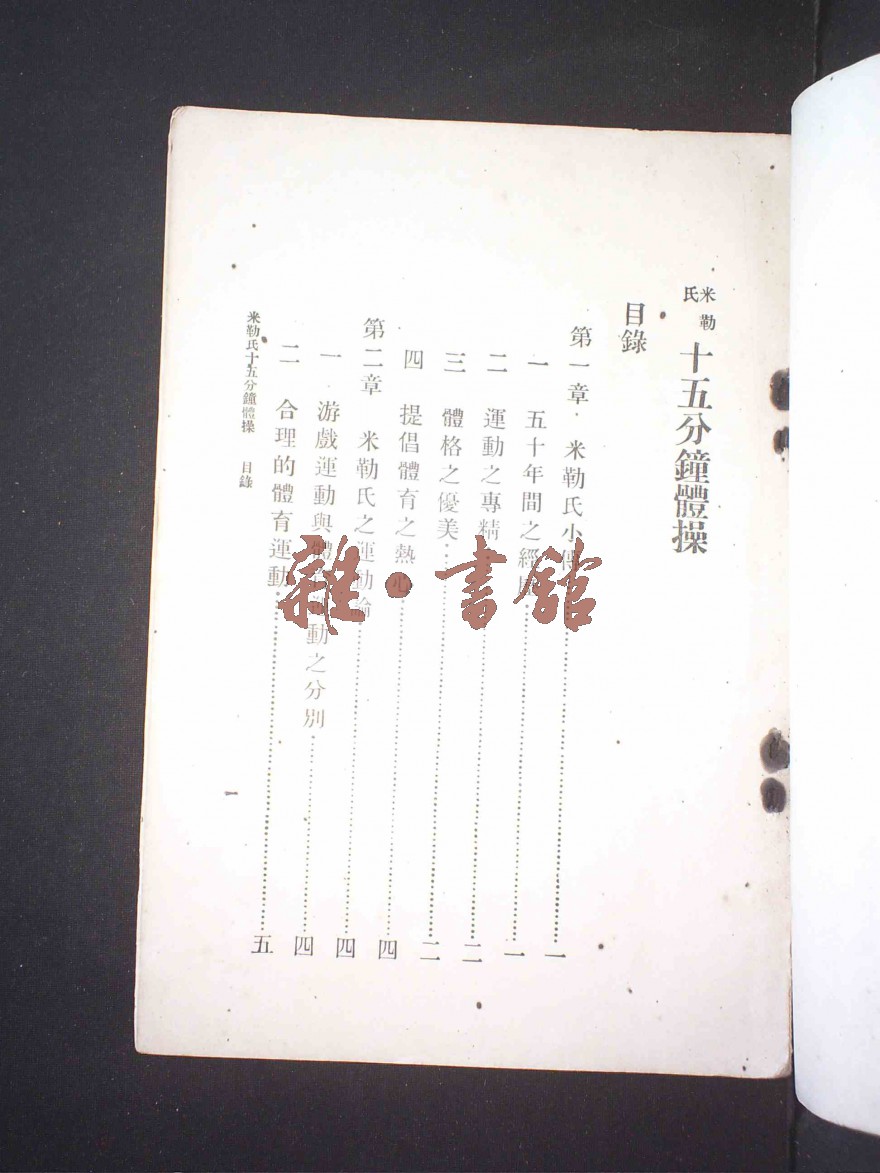 米勒氏十五分鐘體操
目錄
第一章 米勒氏小傳……一
一 五十年間之經歷……一
二 運動之專精……二
三 體格之優美……二
四 提倡體育之熱心……四
第二章 米勒氏之運動論……四
一 游戲運動與體育運動之分別……四
二 合理的體育運動……五
米勒氏十五分鐘體操 目錄
一
雜·書館